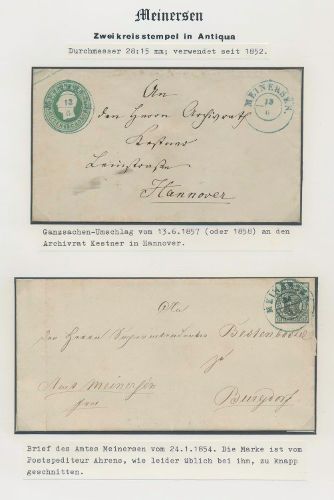 Meinersen
Zweikreisstempel in Antiqua
Durchmesser 28:15 mm; verwendet seit 1852.
MEINERSEN.
13
6
13
6
An
den Herrn Archivrath
Kestner
Leinstrasse
Hannover
Ganzsachen-Umschlag vom 13.6.1857 (oder 1858) an den
Archivrat Kestner in Hannover.
MEINERSEN
An
den Herrn Superintendenten
zu
Amt Meinersen
Burgdorf
Brief des Amtes Meinersen vom 24.1.1854. Die Marke ist vom
Postspediteur Ahrens, wie leider üblich bei ihm, zu knapp
geschnitten.